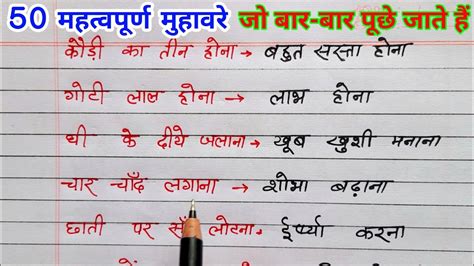 50 महत्वपूर्ण मुहावरे जो बार-बार पूछे जाते हैं
कौड़ी का तीन होना → बहुत सस्ता होना
गोटी लाल होना → लाभ होना
घी के दीये जलाना → खूब खुशी मनाना
चार चाँद लगाना → शोभा बढ़ाना
छाती पर लोटना → ईर्ष्या करना